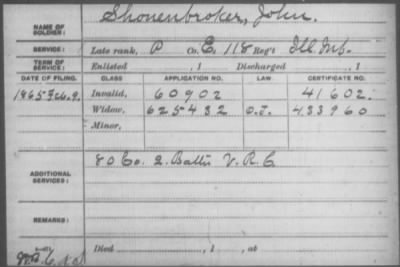 NAME OF SOLDIER: Shonenbroker, John.
SERVICE: Late rank, P Co. E, 118 Reg't Ill. Inf.
TERM OF SERVICE: Enlisted , 1 Discharged , 1
DATE OF FILING. CLASS APPLICATION NO. LAW CERTIFICATE NO.
1865 Feb. 9. Invalid, 60902 41602.
Widow, 625432 O.J. 433960
Minor,
ADDITIONAL SERVICES: 80 Co. 2. Batt'n V. R. C
REMARKS:
Died , 1 , at